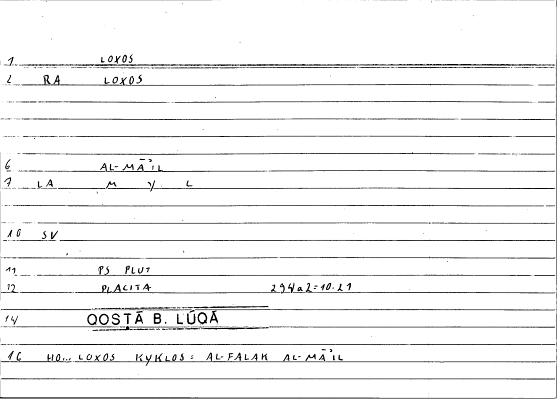 1 LOXOS
2 RA LOXOS
6 AL-MĀʾIL
7 LA M Y L
10 SV
11 PS PLUT
12 PLACITA 294a2=10.21
14 QOSṬĀ B. LŪQĀ
16 HO... LOXOS KYKLOS = AL-FALAK AL-MĀʾIL